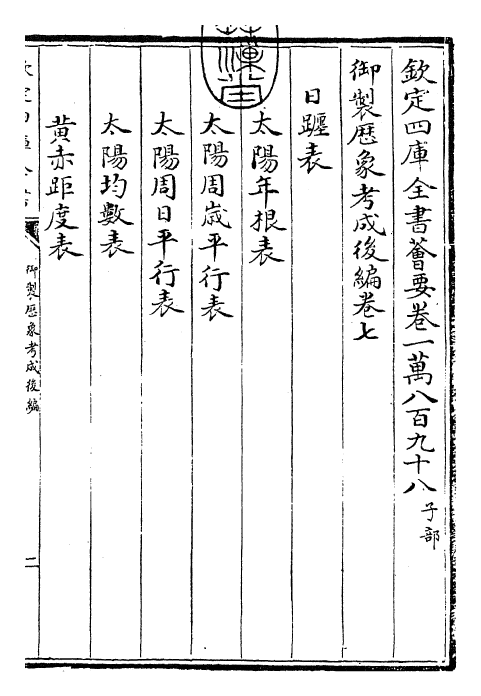 欽定四庫全書薈要卷一萬八百九十八 子部
御製厯象考成後編卷七
日躔表
太陽年根表
太陽周歳平行表
太陽周日平行表
太陽均數表
黄赤距度表
御製厯象考成後編
二